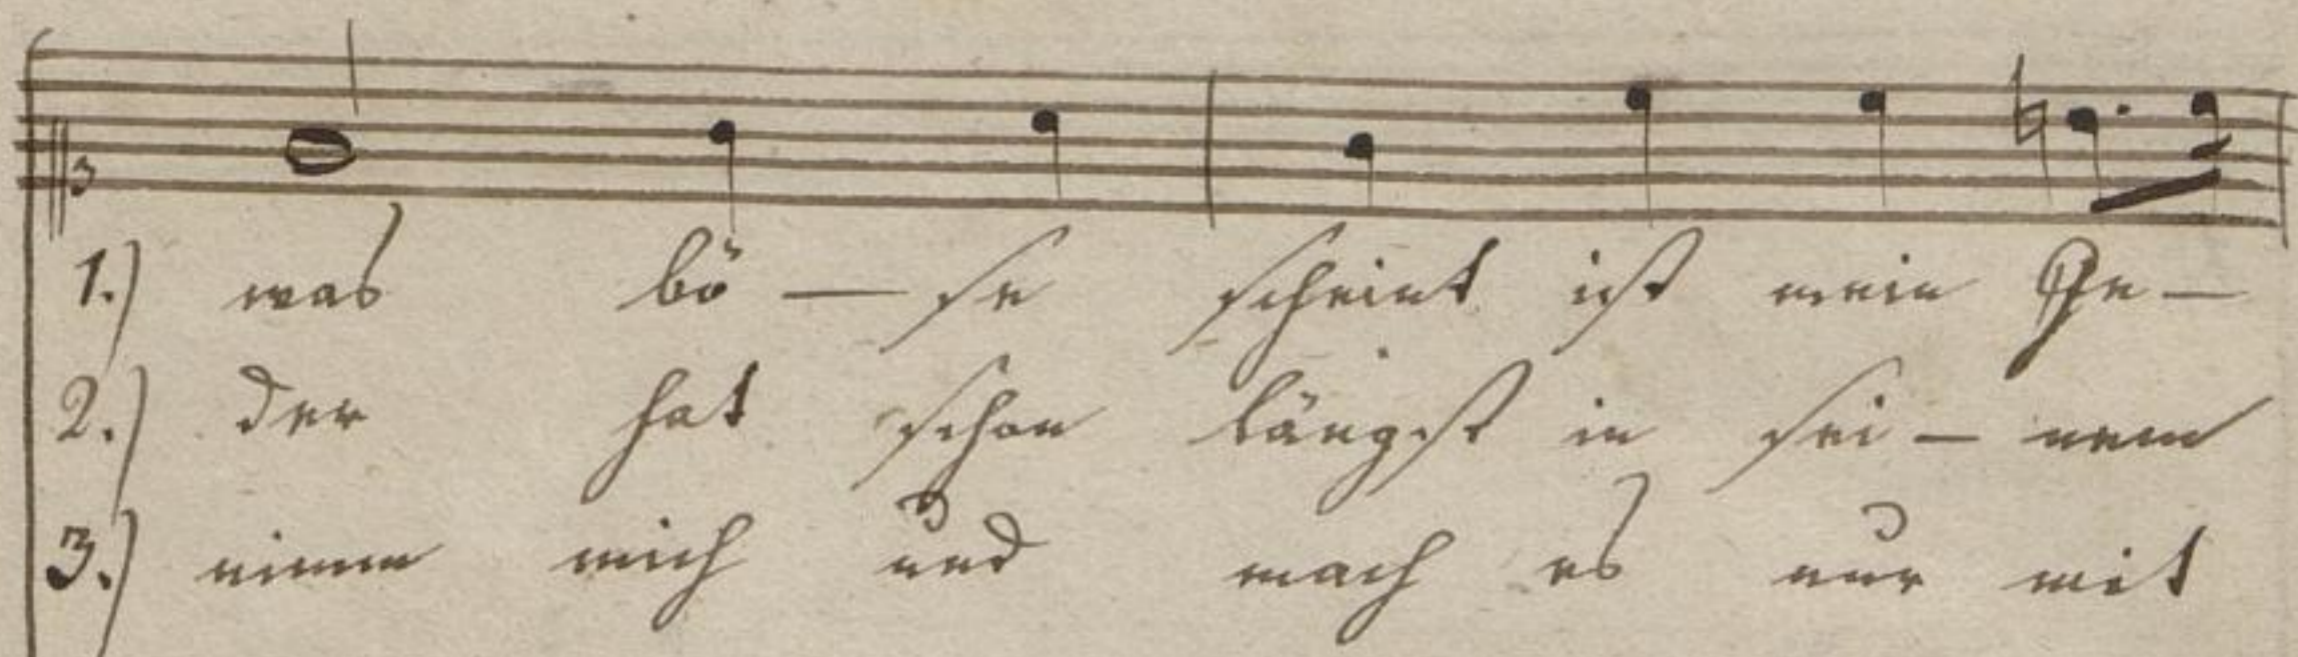 1.) was bö — se scheint ist mein Ge —
2.) der hat schon längst in sei — nem
3.) nimm mich und mach es nur mit